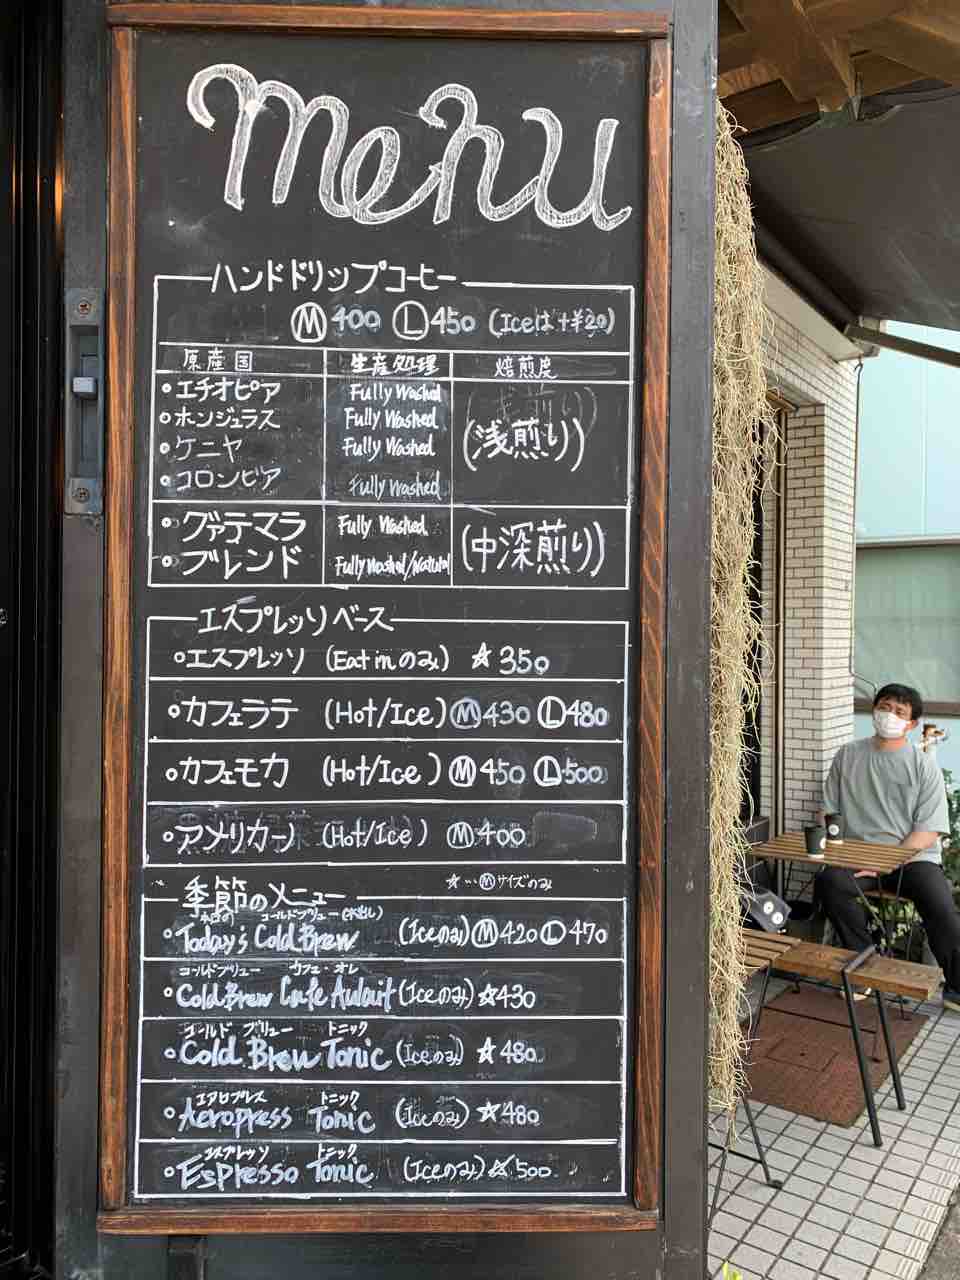 menu
ハンドドリップコーヒー
Ⓜ400 Ⓛ450 (Iceは+¥20)
原産国 生産処理 焙煎度
○エチオピア Fully Washed
○ホンジュラス Fully Washed
(浅煎り)
○ケニヤ Fully Washed
○コロンビア Fully Washed
○グァテマラ Fully Washed
(中深煎り)
○ブレンド Fully Washed/Natural
エスプレッソベース
○エスプレッソ (Eat inのみ) ☆350
○カフェラテ (Hot/Ice) Ⓜ430 Ⓛ480
○カフェモカ (Hot/Ice) Ⓜ450 Ⓛ500
○アメリカーノ (Hot/Ice) Ⓜ400
☆…Ⓜサイズのみ
季節のメニュー
本日の コールドブリュー(水出し)
○Today's Cold Brew (Iceのみ) Ⓜ420 Ⓛ470
コールドブリュー カフェ・オレ
○Cold Brew Cafe Aulait (Iceのみ) ☆430
コールド ブリュー トニック
○Cold Brew Tonic (Iceのみ) ☆480
エアロプレス トニック
○Aeropress Tonic (Iceのみ) ☆480
エスプレッソ トニック
○Espresso Tonic (Iceのみ) ☆500